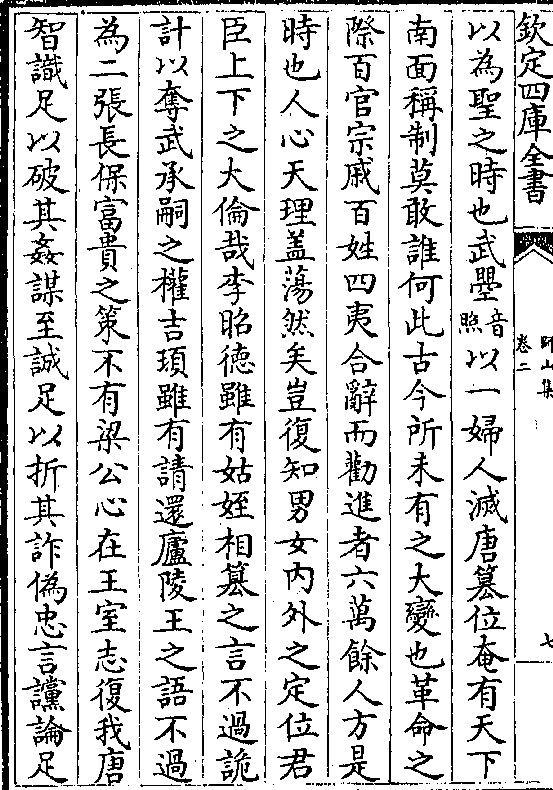 欽定四庫全書
師山集
卷二
七
以為聖之時也武曌音照以一婦人滅唐篡位奄有天下
南面稱制莫敢誰何此古今所未有之大變也革命之
際百官宗戚百姓四夷合辭而勸進者六萬餘人方是
時也人心天理蓋蕩然矣豈復知男女內外之定位君
臣上下之大倫哉李昭德雖有姑姪相篡之言不過詭
計以奪武承嗣之權吉頊雖有請還廬陵王之語不過
為二張長保富貴之策不有梁公心在王室志復我唐
智識足以破其姦謀至誠足以折其詐偽忠言讜論足